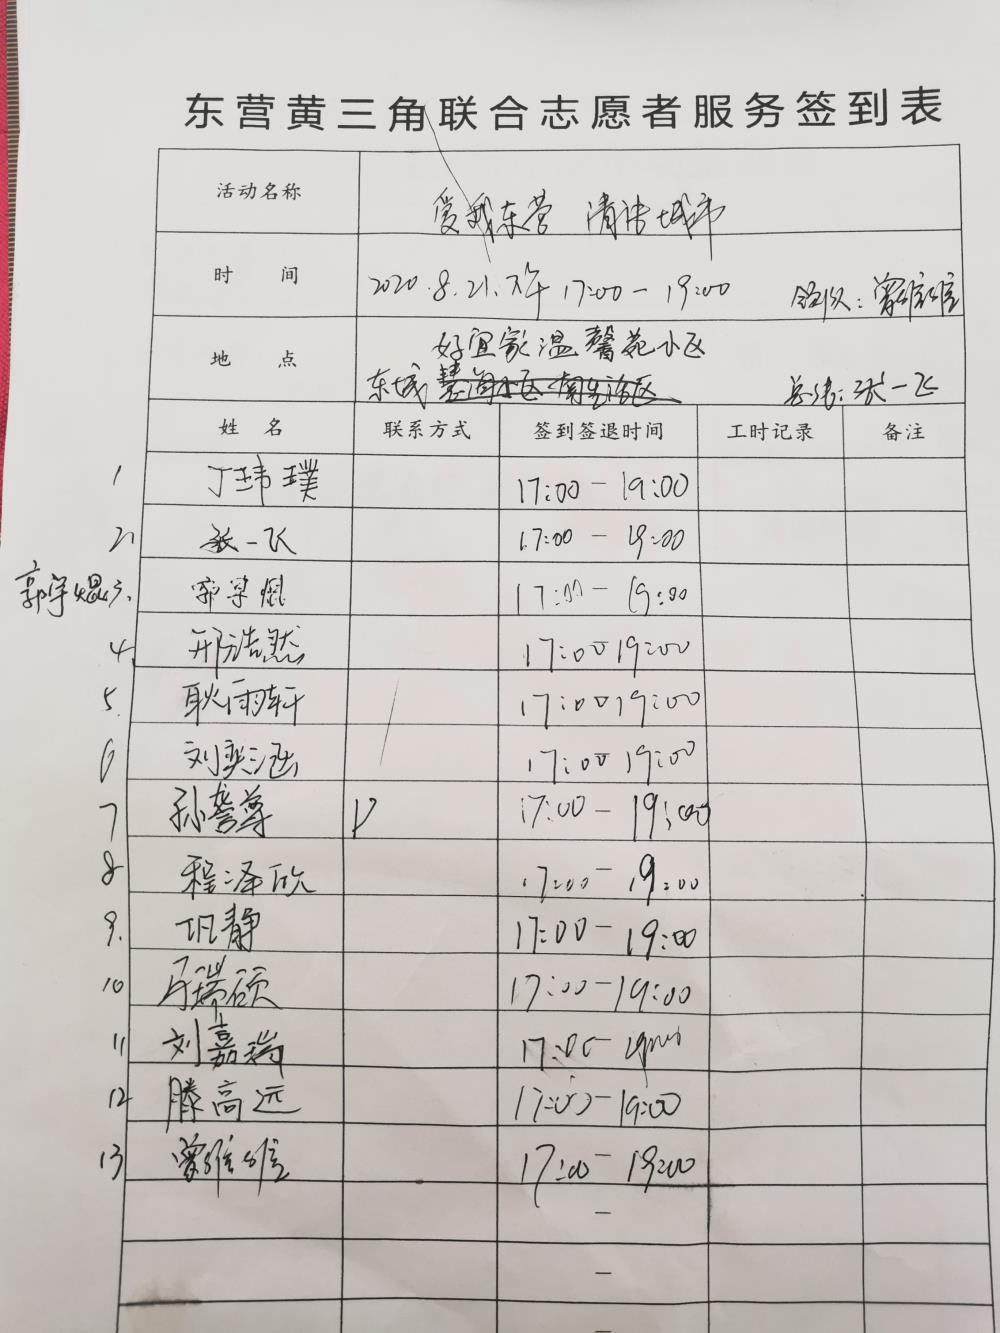 东营黄三角联合志愿者服务签到表
活动名称 爱我东营 清洁城市
时 间 2020.8.21.下午 17:00-19:00 领队:
地 点 好宜家温馨苑小区
东城 总结:张一飞
姓 名 联系方式 签到签退时间 工时记录 备注
1 丁玮璞 17:00-19:00
2. 张一飞 17:00-19:00
郭宇焜 3. 郭宇焜 17:00-19:00
4. 邢浩然 17:00 19:00
5. 耿雨轩 17:00 19:00
6 刘奕涵 17:00 19:00
7 孙誉尊 17:00-19:00
8 程泽欣 17:00-19:00
9. 巩静 17:00-19:00
10 瑞硕 17:00-19:00
11 刘嘉瑞 17:00-19:00
12 滕高远 17:00-19:00
13 17:00-19:00
-
-
-